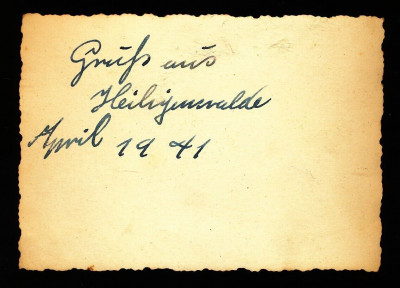 Gruß aus
Heiligenwalde
April 1941